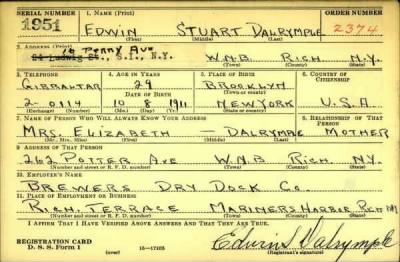 SERIAL NUMBER 1. NAME (Print) ORDER NUMBER
1951 EDWIN STUART DALRYMPLE 2374
(First) (Middle) (Last)
16 PERRY AVE
2. ADDRESS (Print)
24 Ludwig St., S.I., N.Y. W.N.B. RICH. N.Y.
(Number and street or R. F. D. number) (Town) (County) (State)
3. TELEPHONE 4. AGE IN YEARS 5. PLACE OF BIRTH 6. COUNTRY OF CITIZENSHIP
GIBRALTAR 29 BROOKLYN
DATE OF BIRTH (Town or county)
2-0114 10 8 1911 NEW YORK U.S.A.
(Exchange) (Number) (Mo.) (Day) (Yr.) (State or country)
7. NAME OF PERSON WHO WILL ALWAYS KNOW YOUR ADDRESS 8. RELATIONSHIP OF THAT PERSON
MRS. ELIZABETH — DALRYMPLE MOTHER
(Mr., Mrs., Miss) (First) (Middle) (Last)
9. ADDRESS OF THAT PERSON
262 POTTER AVE W.N.B RICH. NY.
(Number and street or R. F. D. number) (Town) (County) (State)
10. EMPLOYER'S NAME
BREWERS DRY DOCK CO.
11. PLACE OF EMPLOYMENT OR BUSINESS
RICH. TERRACE MARINERS HARBOR RICH NY
(Number and street or R. F. D. number) (Town) (County) (State)
I AFFIRM THAT I HAVE VERIFIED ABOVE ANSWERS AND THAT THEY ARE TRUE.
REGISTRATION CARD
D. S. S. Form 1 (over) 16—17105 Edwin S Dalrymple
(Registrant's signature)